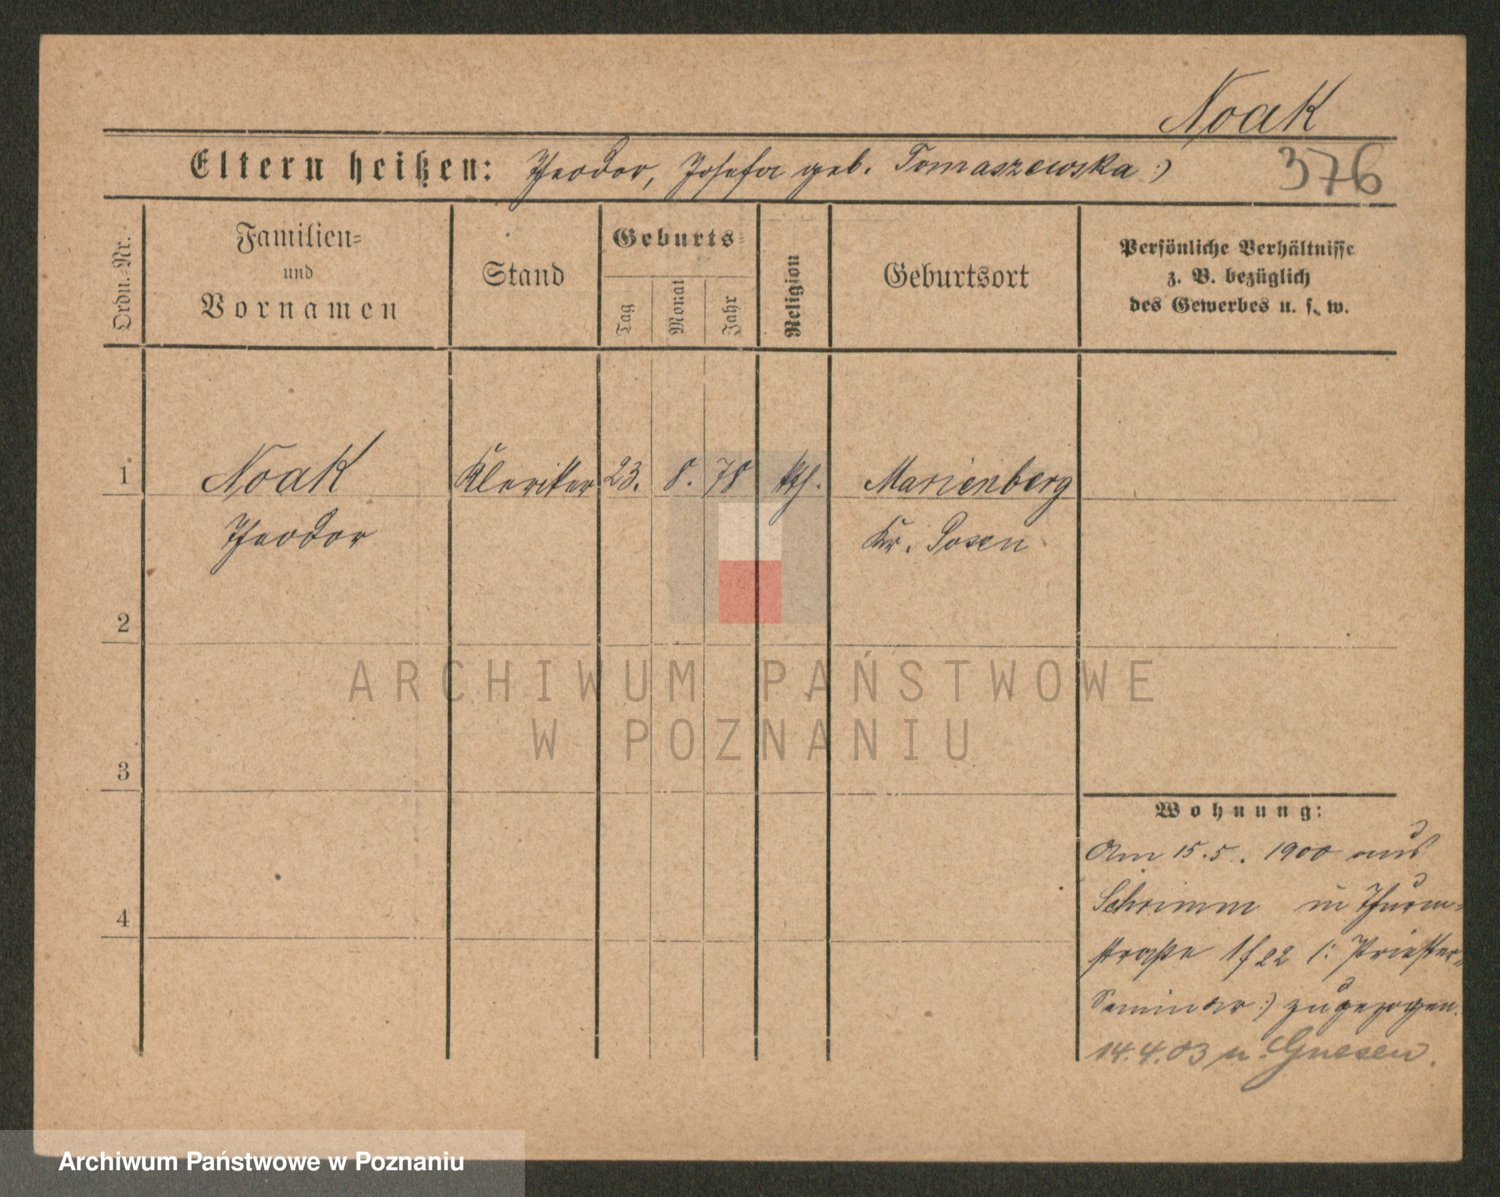 Noak
Eltern heißen: Theodor, Josefa geb. Tomaszewska :)
376
Ordn.-Nr.
Familien-
und
Vornamen
Stand
Geburts-
Tag
Monat
Jahr
Religion
Geburtsort
Persönliche Verhältnisse
z. B. bezüglich
des Gewerbes u. s. w.
1
Noak Kleriker 23. 8. 78 kth. Marienberg
Theodor Kr. Posen
2
ARCHIWUM PAŃSTWOWE
W POZNANIU
3
Wohnung:
Am 15.5. 1900 aus
Schrimm in Thurm-
4
straße 1/22 (: Priester-
Seminar :) zugezogen.
14.4.03 n. Gnesen.
Archiwum Państwowe w Poznaniu